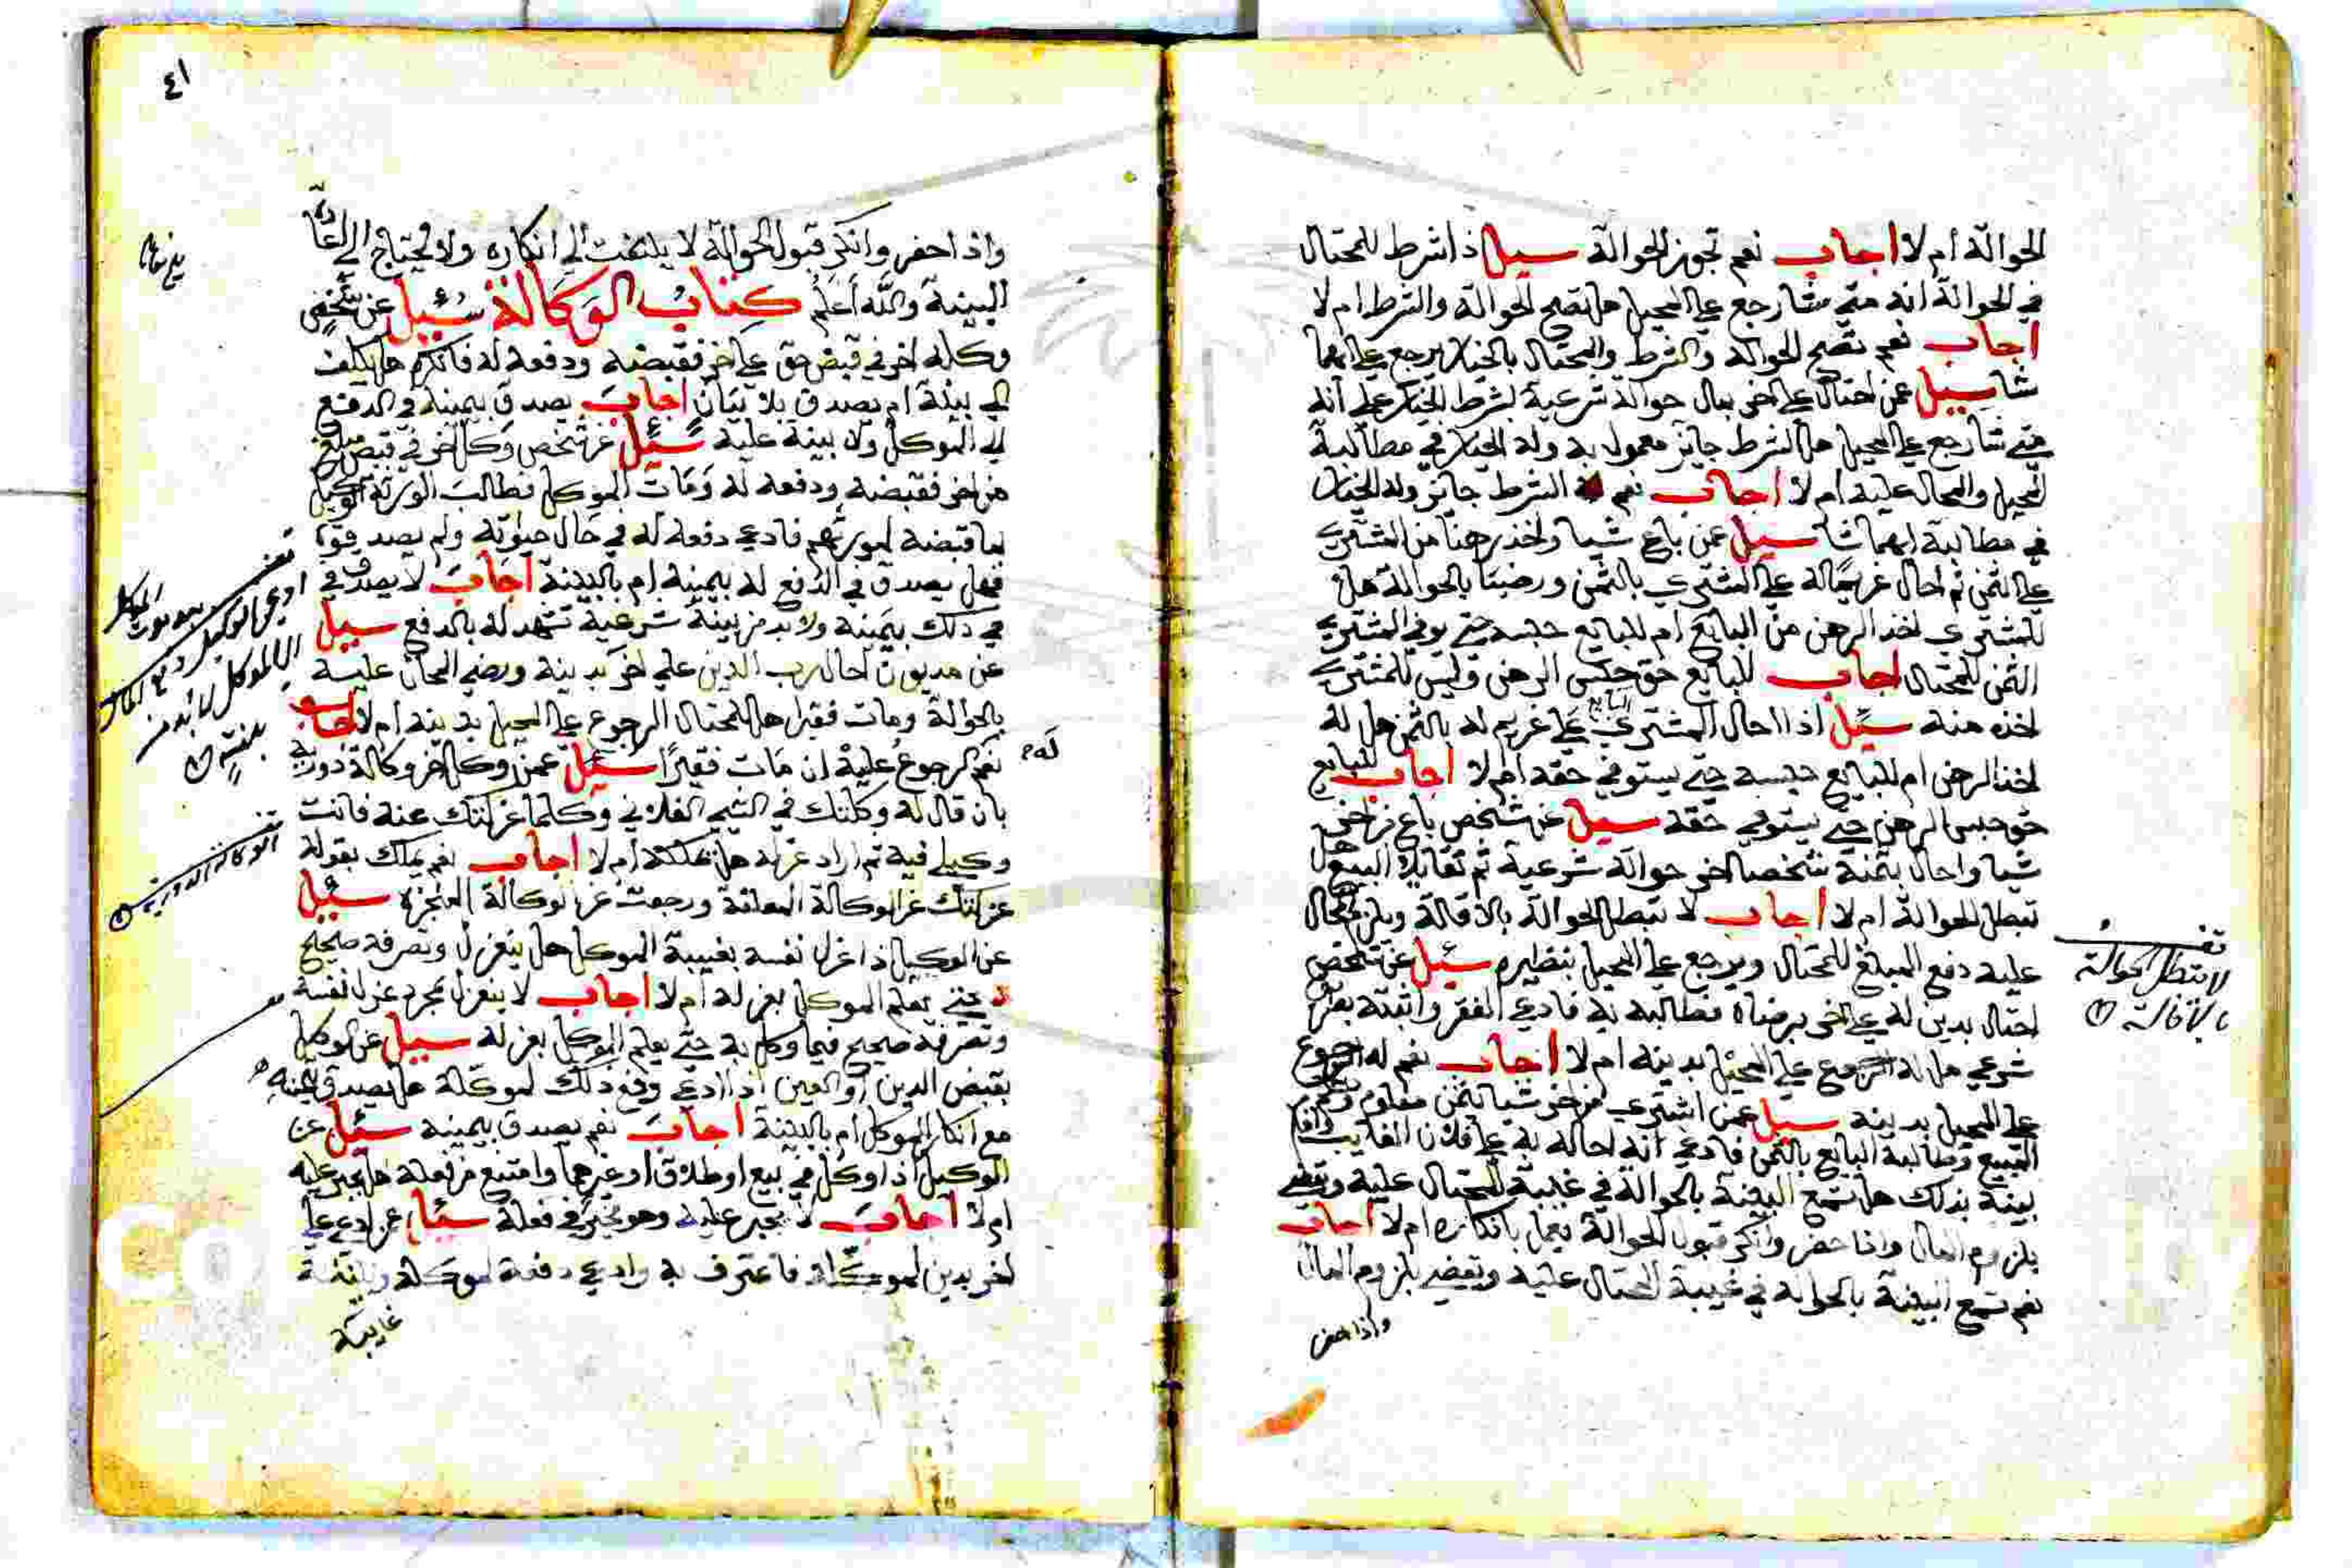 الحوالة أم لا اجاب نعم تجوز الحوالة سيل اذا شرط للمحتال
في الحوالة انه متى شا رجع على المحيل هل تصح الحوالة والشرط ام لا
اجاب نعم تصح الحوالة والشرط والمحتال بالخيار يرجع على ايهما
شا سيل عمن احتال على اخر بمال حوالة شرعية بشرط الخيار على انه
متى شا رجع على المحيل هل الشرط جايز معمول به وله الخيار في مطالبة
المحيل والمحال عليه ام لا اجاب نعم الشرط جايز وله الخيار
في مطالبة ايهما شا سيل عمن باع شيا واخذ رهنا من المشتري
على الثمن ثم احال غريما له على المشتري بالثمن ورضيا بالحوالة هل
للمشتري اخذ الرهن من البايع ام للبايع حبسه حتى يوفي المشتري
الثمن للمحتال اجاب للبايع حق حبس الرهن وليس للمشتري
اخذه منه سئل اذا احال المشتري البايع على غريم له بالثمن هل له
اخذ الرهن ام للبايع حبسه حتى يستوفي حقه ام لا اجاب للبايع
حق حبس الرهن حتى يستوفي حقه سيل عن شخص باع من اخر
شيا واحال بثمنه شخصا اخر حوالة شرعية ثم تقايلا البيع هل
تبطل الحوالة ام لا اجاب لا تبطل الحوالة بالاقالة ويلزم المحال
عليه دفع المبلغ للمحتال ويرجع على المحيل بنظيره سئيل عن شخص
احتال بدين له على اخر برضاه فطالبه به فادعى الفقر واثبته بطريق
شرعي هل له الرجوع على المحيل بدينه ام لا اجاب نعم له الرجوع
على المحيل بدينه سيل عمن اشترى من اخر شيا بثمن معلوم وتسلم
المبيع وطالبه البايع بالثمن فادعى انه احاله به على فلان الغايب واقام
بينة بذلك هل تسمع البينة بالحوالة في غيبة المحتال عليه ويقضى
بلزوم المال واذا حضر وانكر قبول الحوالة يعمل بانكاره ام لا اجاب
نعم تسمع البينة بالحوالة في غيبة المحتال عليه ويقضى بلزوم المال
واذا حضر
تف
لا تبطل الحوالة
بالاقالة
٤١
واذا حضر وانكر قبول الحوالة لا يلتفت الى انكاره ولا يحتاج الى اعادة
البينة والله أعلم كتاب الوكالة سئيل عن شخص
وكله اخر في قبض حق على اخر فقبضه ودفعه له فانكره هل يكلف
الى بينة ام يصدق بلا بيان اجاب يصدق بيمينه في الدفع
الى الموكل ولا بينة عليه سئيل عن شخص وكل اخر في قبض مبلغ
من اخر فقبضه ودفعه له ومات الموكل فطالب الورثة الوكيل
بما قبضه لمورثهم فادعى دفعه له في حال حياته ولم يصدقوه
فهل يصدق في الدفع له بيمينه ام بالبينة اجاب لا يصدق في
في ذلك بيمينه ولا بد من بينة شرعية تشهد له بالدفع سيل
عن مديون احال رب الدين على اخر بدينه ورضي المحال عليه
بالحوالة ومات فقيرا هل للمحتال الرجوع على المحيل بدينه ام لا اجاب
نعم له الرجوع عليه ان مات فقيرًا سئيل عمن وكل اخر وكالة دورية
بان قال له وكلتك في الشي الفلاني وكلما عزلتك عنه فانت
وكيلي فيه ثم اراد عزله هل يملكه ام لا اجاب نعم يملك بقوله
عزلتك عن الوكالة المعلقة ورجعت عن الوكالة المنجزة سئيل
عن الوكيل اذا عزل نفسه بغيبة الموكل هل ينعزل وتصرفه صحيح
حتى يعلم الموكل بعزله ام لا اجاب لا ينعزل بمجرد عزل نفسه
وتصرفه صحيح فيما وكل به حتى يعلم الموكل بعزله سيل عن الوكيل
بقبض الدين او العين اذا ادعى دفع ذلك لموكله هل يصدق بيمينه
مع انكار الموكل ام بالبينة اجاب نعم يصدق بيمينه سئيل عن
الوكيل اذا وكل في بيع او طلاق او غيرهما وامتنع من فعله هل يجبر عليه
ام لا اجاب لا يجبر عليه وهو مخير في فعله سئيل عن ادعى على
اخر بدين لموكله فاعترف به وادعى دفعه لموكله وبينته
غايبة
ادعى الوكيل دفع المال
الى الموكل لا بد من
بينة
الوكالة الدورية